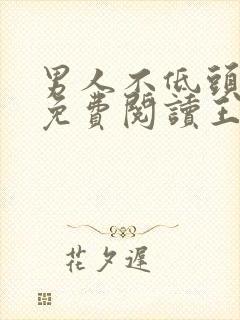 男人不低頭
免費閱讀王
花夕遲